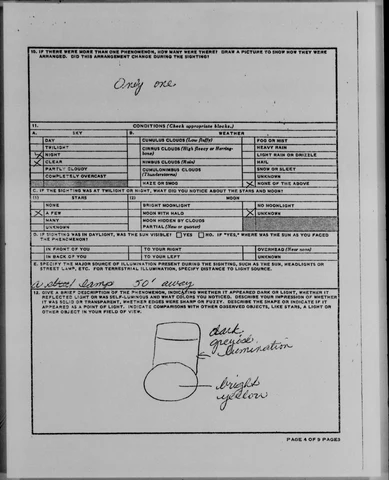 10. IF THERE WERE MORE THAN ONE PHENOMENON, HOW MANY WERE THERE? DRAW A PICTURE TO SHOW HOW THEY WERE
ARRANGED. DID THIS ARRANGEMENT CHANGE DURING THE SIGHTING?
Only one.
11. CONDITIONS (Check appropriate blocks.)
A. SKY B. WEATHER
DAY CUMULUS CLOUDS (Low fluffy) FOG OR MIST
TWILIGHT CIRRUS CLOUDS (High fleecy or Herring-
bone) HEAVY RAIN
X NIGHT LIGHT RAIN OR DRIZZLE
X CLEAR NIMBUS CLOUDS (Rain) HAIL
PARTLY CLOUDY CUMULONIMBUS CLOUDS
(Thunderstorms) SNOW OR SLEET
COMPLETELY OVERCAST UNKNOWN
HAZE OR SMOG X NONE OF THE ABOVE
C. IF THE SIGHTING WAS AT TWILIGHT OR NIGHT, WHAT DID YOU NOTICE ABOUT THE STARS AND MOON?
(1) STARS (2) MOON
NONE BRIGHT MOONLIGHT NO MOONLIGHT
X A FEW MOON WITH HALO X UNKNOWN
MANY MOON HIDDEN BY CLOUDS
UNKNOWN PARTIAL (New or quarter)
D. IF SIGHTING WAS IN DAYLIGHT, WAS THE SUN VISIBLE? YES NO. IF "YES," WHERE WAS THE SUN AS YOU FACED
THE PHENOMENON?
IN FRONT OF YOU TO YOUR RIGHT OVERHEAD (Near noon)
IN BACK OF YOU TO YOUR LEFT UNKNOWN
E. SPECIFY THE MAJOR SOURCE OF ILLUMINATION PRESENT DURING THE SIGHTING, SUCH AS THE SUN, HEADLIGHTS OR
STREET LAMP, ETC. FOR TERRESTRIAL ILLUMINATION, SPECIFY DISTANCE TO LIGHT SOURCE.
lamp 50' away
12. GIVE A BRIEF DESCRIPTION OF THE PHENOMENON, INDICATING WHETHER IT APPEARED DARK OR LIGHT, WHETHER IT
REFLECTED LIGHT OR WAS SELF-LUMINOUS AND WHAT COLORS YOU NOTICED. DESCRIBE YOUR IMPRESSION OF WHETHER
IT WAS SOLID OR TRANSPARENT, WHETHER EDGES WERE SHARP OR FUZZY. DESCRIBE THE SHAPE OR INDICATE IF IT
APPEARED AS A POINT OF LIGHT. INDICATE COMPARISONS WITH OTHER OBSERVED OBJECTS, LIKE STARS, A LIGHT OR
OTHER OBJECT IN YOUR FIELD OF VIEW.
dark
bright
yellow
PAGE 4 OF 9 PAGES